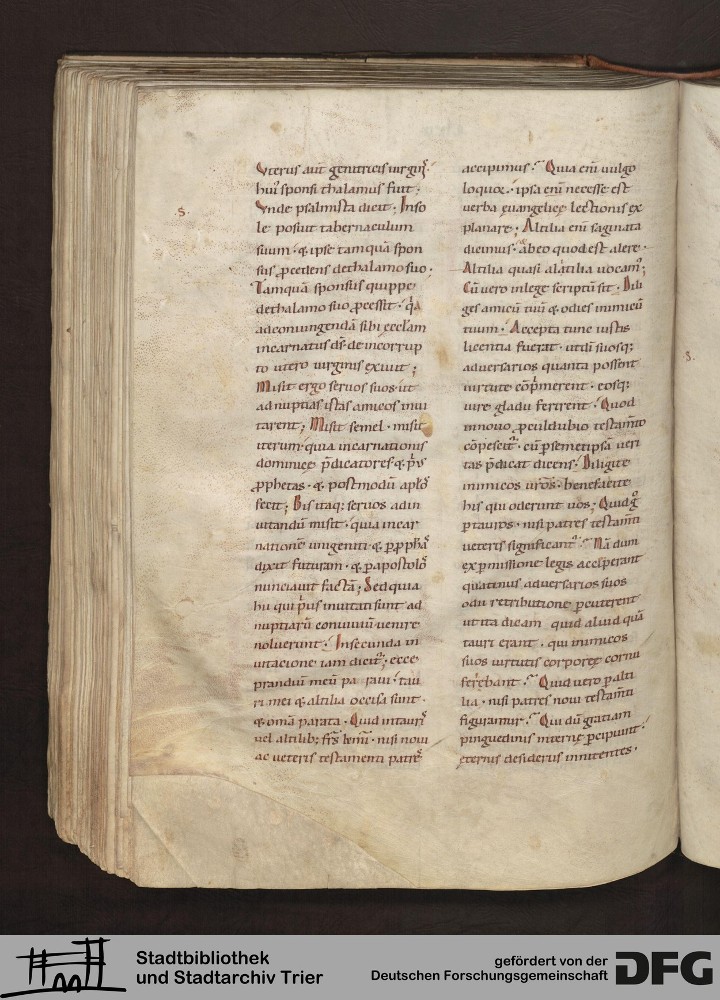 Vterus aut̄ genitricis uirginˢ·
hui᾽ sponsi thalamus fuit·
Vnde psalmista dicit; Inso
le posuit tabernaculum
suum· & ipse tamquā spon
sus ꝓcedens dethalamo suo·
Tamquā sponsus quippe
dethalamo suo ꝓcessit· qͣa
adconiungendā sibi eccƚam
incarnatus ds̄· de incorrup
to utero uirginis exiuit;
Misit ergo seruos suos· ut
ad nuptias istas amicos inui
tarent; Misit semel· misit
iterum· quia incarnationis
dominicę p̄dicatores & pͥus
ꝓphetas· & postmodū apłos
fecit; Bis itaq; seruos adin
uitandū misit· quia incar
nationē unigeniti & ꝑ ꝓphᷓas
dixit futuram· & ꝑ apostolos
nunciauit factā; Sed quia
hii qui pͥus inuitati sunt ad
nuptiarū conuiuiū uenire
noluerunt· Insecunda in
uitacione iam dicit᷑· ecce
prandiū meū pa raui· tau
ri mei & altilia occisa sunt·
& omīa parata· Quid in tauris
uel altilib; frs̄ kmi᷑· nisi noui
ac ueteris testamenti patres
accipimus· Quia eni᷑ uulgo
loquor· ipsa eni᷑ necesse est
uerba euangelicę lectionis ex
planare; Altilia eni᷑ saginata
dicimus· ab eo quod est alere·
Altilia quasi alatilia uocam᾽;
Cū uero in lege scriptū sit· Dili
ges amicū tuū & odies inimicū
tuum· Accepta tunc iustis
licentia fuerat· ut dī suosq;
aduersarios quanta possent
uirtute cōp̄merent· eosq;
iure gladii ferirent· Quod
innouo ꝓculdubio testam̄to
cōpescit᷑· cū ꝑ semetipsā ueri
tas p̄dicat dicens· Diligite
inimicos uros̄· benefacite
his qui oderint uos; Quid gͦ
ꝑ tauros· nisi patres testam̄ti
ueteris significant᷑· Nā dum
ex ꝑmissione legis acceperant
quatinus aduersarios suos
odii retributione ꝑcuterent
ut ita dicam quid aliud quā
tauri erant· qui inimicos
suos uirtutis corporeę cornu
feriebant· Quid uero ꝑ alti
lia· nisi patres noui testam̄ti
figurantur· Qui dū gratiam
pinguedinis internę ꝑcipiunt·
ęternis desideriis innitentes·
·S·
·S·
Stadtbibliothek
und Stadtarchiv Trier
gefördert von der
Deutschen Forschungsgemeinschaft
DFG